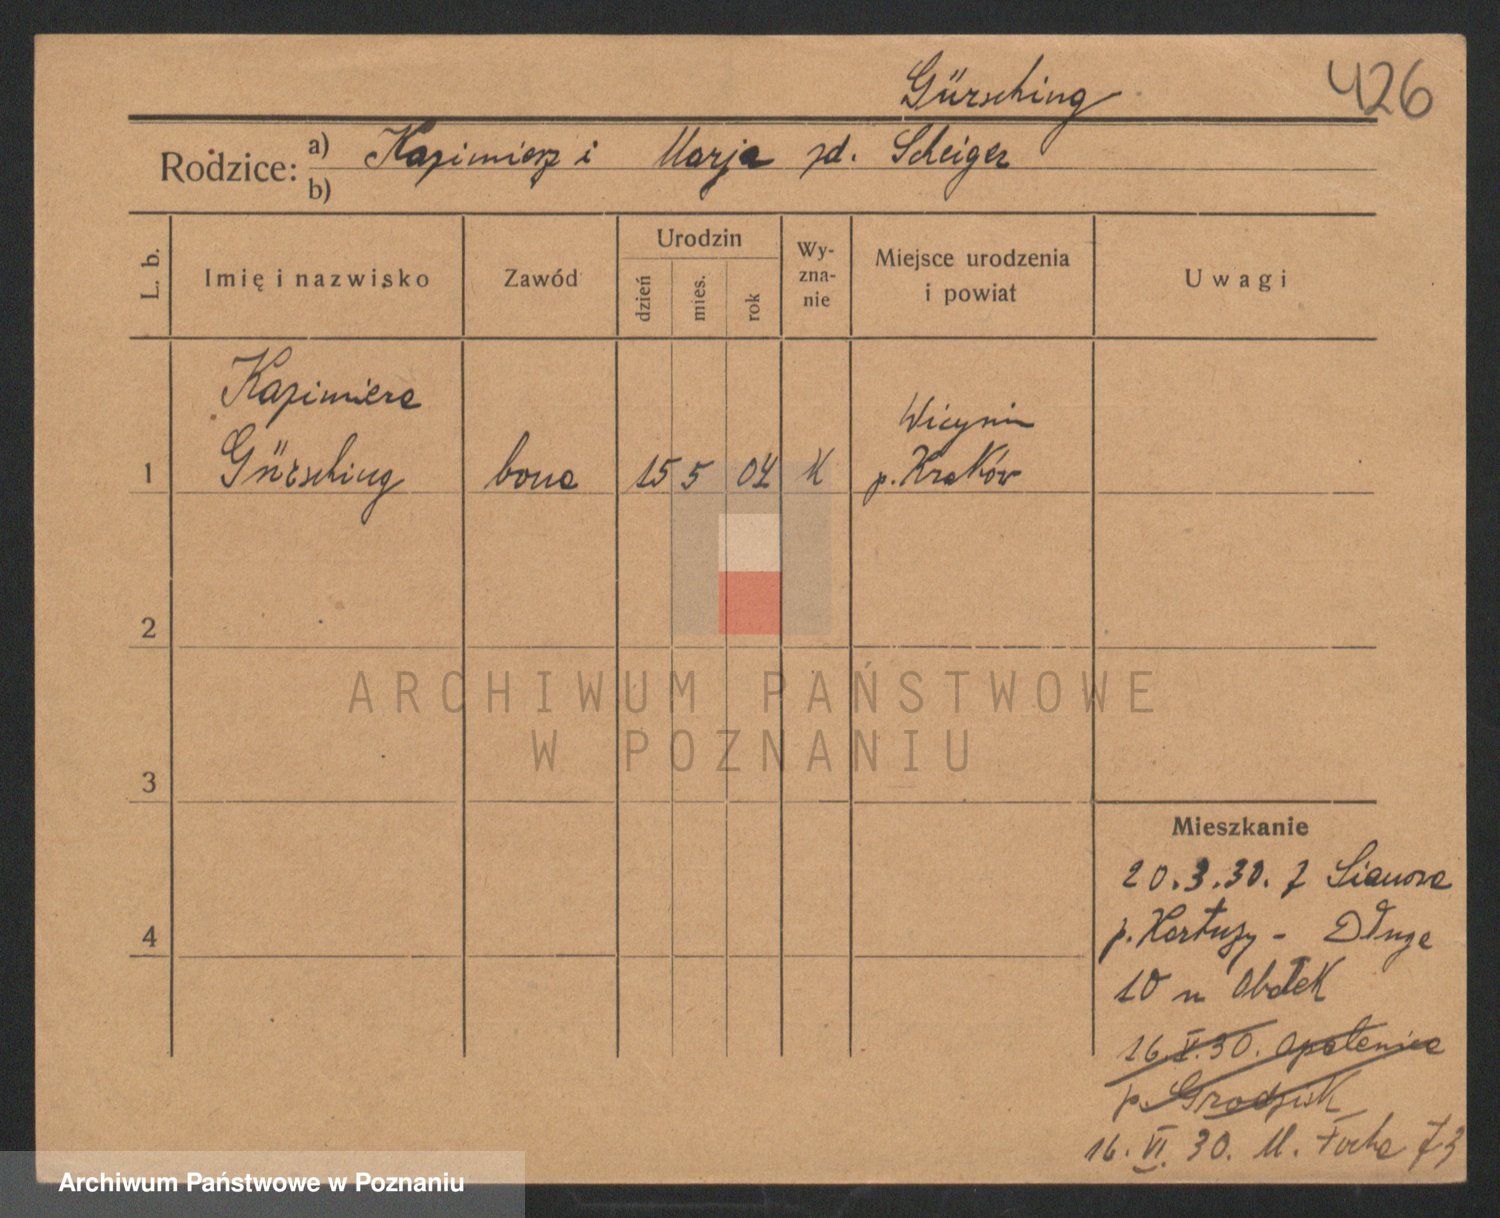 Gürsching 426
Rodzice: a) Kazimierz i Marja zd. Scheiger
b)
L. b. Imię i nazwisko Zawód Urodzin dzień mies. rok Wy-zna-nie Miejsce urodzenia i powiat Uwagi
Kazimiera
1 Gürsching bona 15 5 04 K
p. Kraków
2
ARCHIWUM PAŃSTWOWE
W POZNANIU
3
Mieszkanie
20.3.30. z Sianowa
p. Kartuzy - Długa
4
10 u
16.V.30. Opalenica
p. Grodzisk
16. VI. 30. M. Focha 73
Archiwum Państwowe w Poznaniu